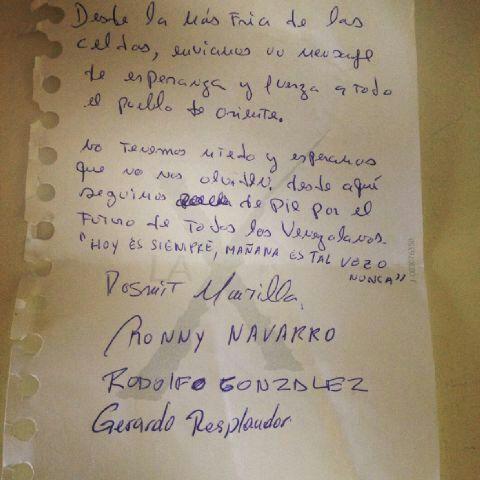 Desde la más fría de las
celdas, enviamos un mensaje
de esperanza y fuerza a todo
el pueblo de oriente.
No tenemos miedo y esperamos
que no nos olviden. desde aquí
seguimos de pie por el
Futuro de Todos los Venezolanos.
"HOY ES SIEMPRE, MAÑANA ES TAL VEZ O
NUNCA"
Dosmit Mantilla,
RONNY NAVARRO
RODOLFO GONZALEZ
Gerardo Resplandor